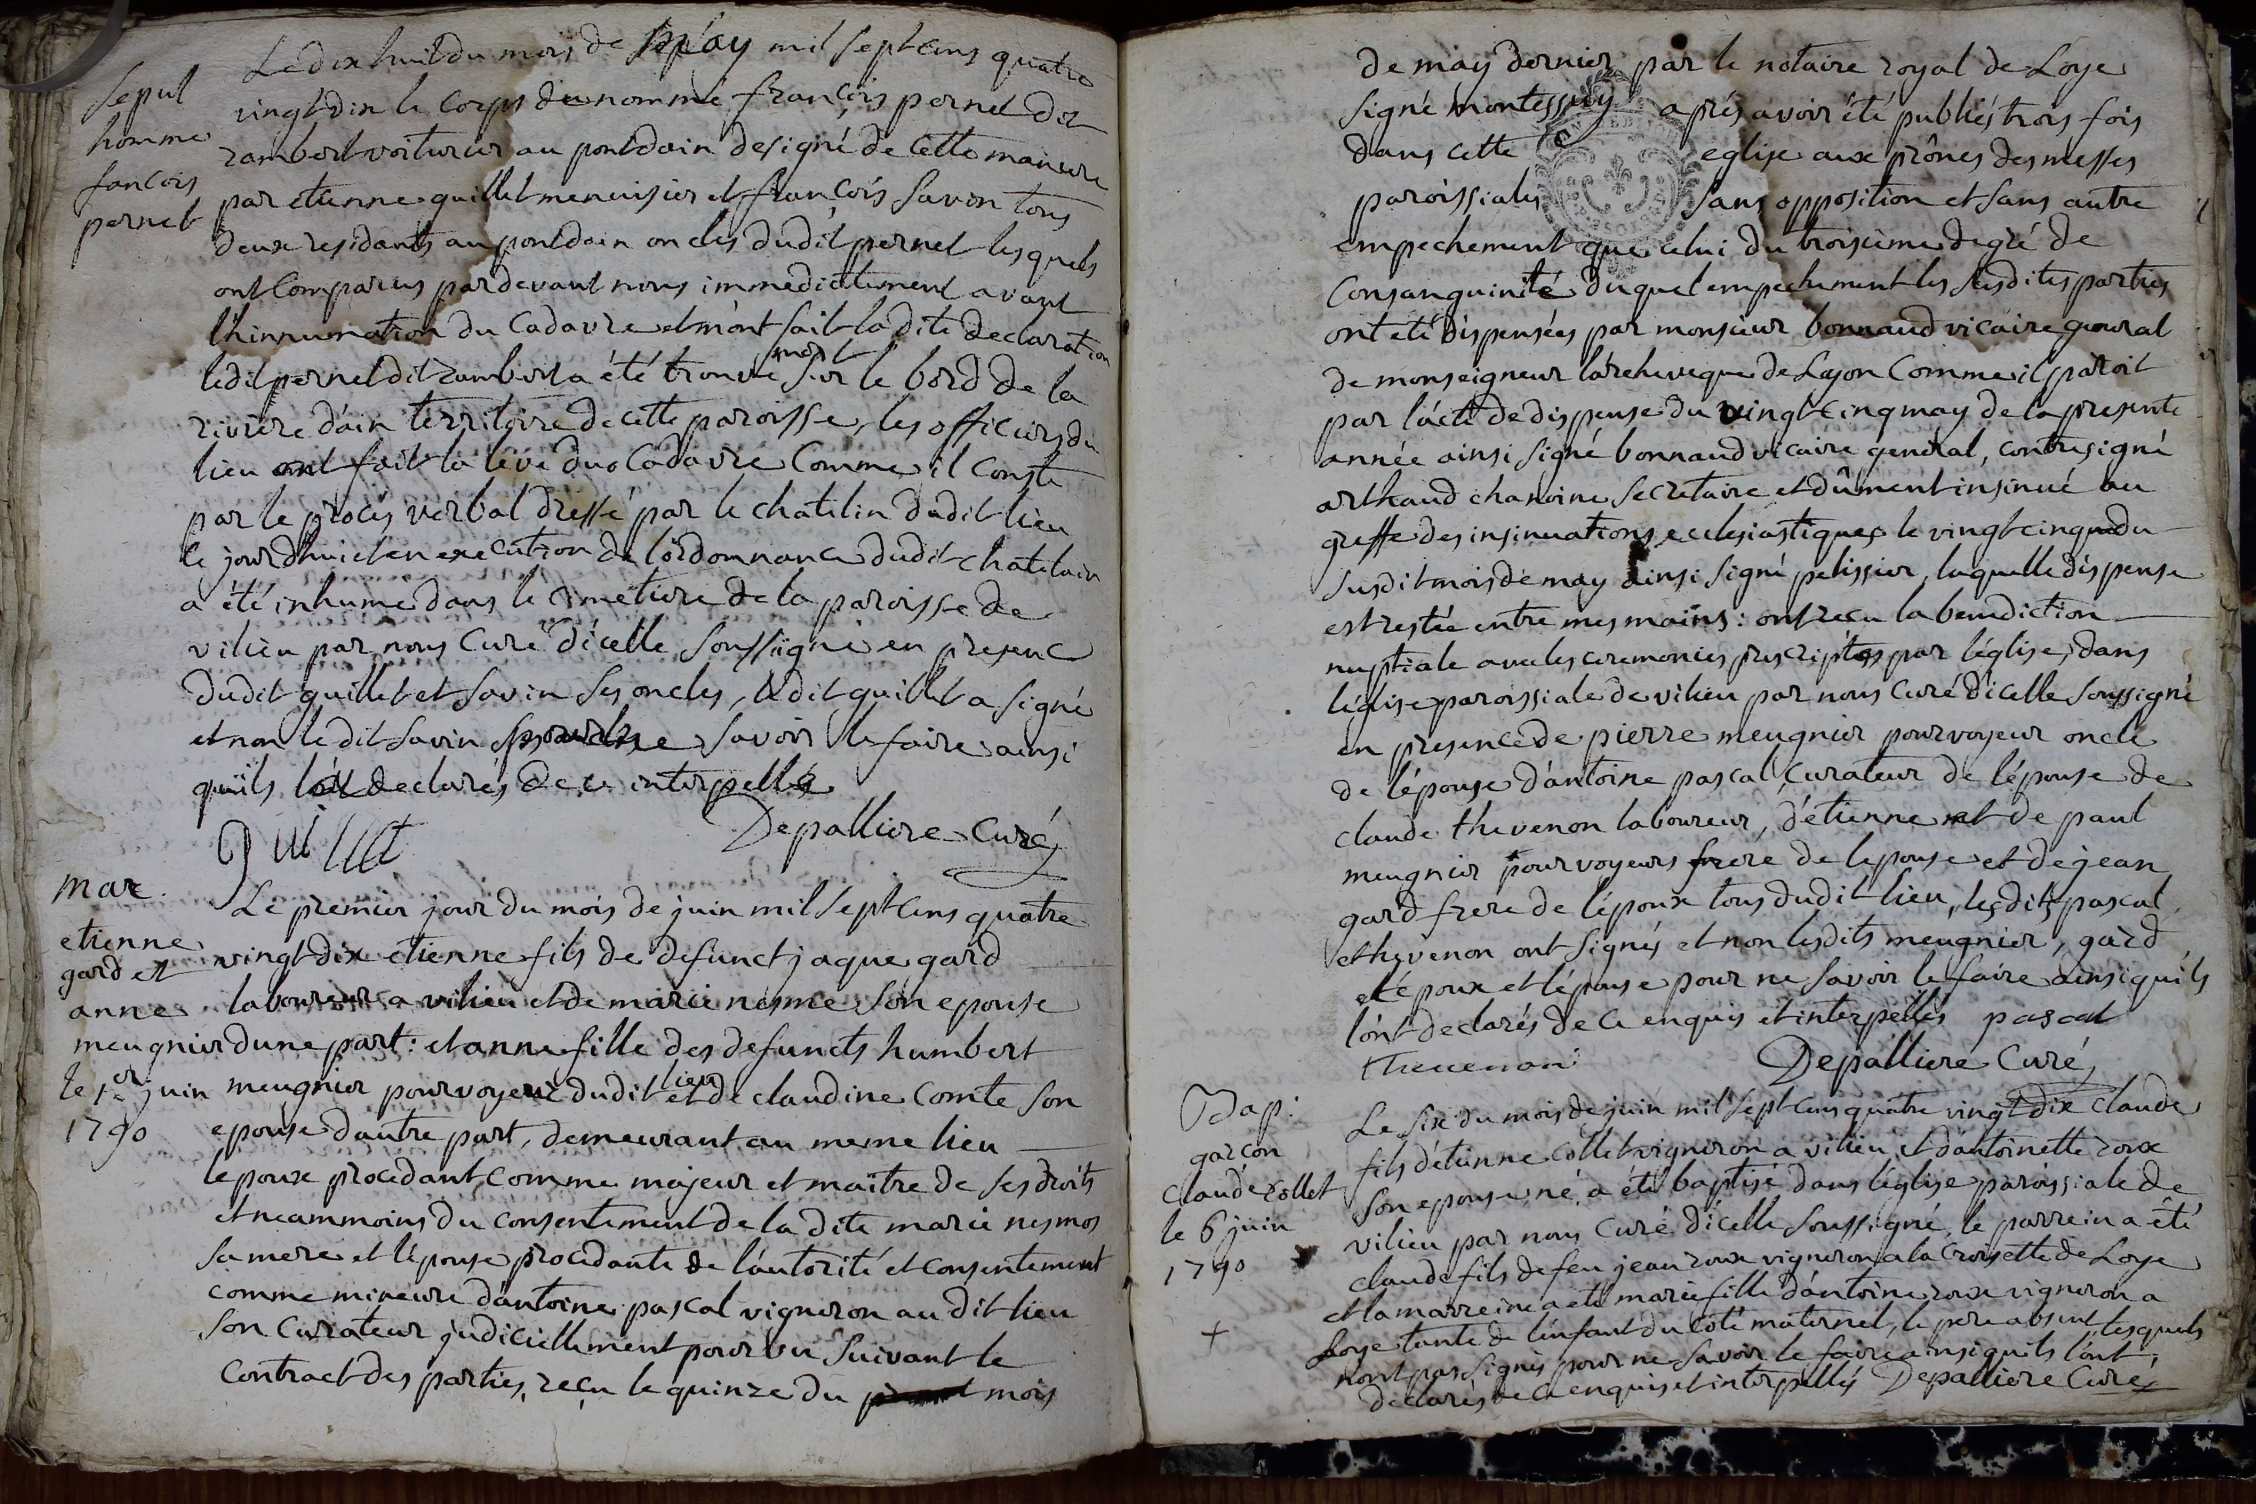 Sepul
homme
francois
pernet
Le dix huit du mois de may mil sept cens quatre
vingt dix le corps du nommé françois pernet dit
rambert voiturier au pont dain designé de cette maniere
par etienne quillet menuisier et françois Savin tous
deux residants au pont dain oncles dudit pernet lesquels
ont comparus pardevant nous immediatement avant
l'hinnumation du Cadavre et m'ont fait la dite declaration
ledit pernet dit rambert a été trouvé mort sur le bord de la
riviere d'ain territoire de cette paroisse, les officiers du
lieu ont fait la levé du Cadavre Comme il Conste
par le procés verbal dressé par le chatelin dudit lieu
le jourdhui et en execution de l'ordonnance dudit chatelain
a été inhumé dans le cimetiere de la paroisse de
vilieu par nous Curé d'icelle Soussigné en presence
dudit quillet et Savin Ses oncles, ledit quillet a signé
et non le dit Savin pour ne Savoir le faire ainsi
qu'ils l'ont declarés de ce interpellés
Quillet
Depalliere Curé
Mar.
etienne
gard et
anne
meugnier
le 1er juin
1790
Le premier jour du mois de juin mil Sept Cens quatre
vingt dix etienne fils de defunct jaque gard
laboureur a vilieu et de marie nesme Son epouse
dune part: et anne fille des defuncts humbert
meugnier pourvoyeur dudit lieu et de claudine Comte Son
epouse d'autre part, demeurant au meme lieu
lepoux procedant Comme majeur et maître de Ses droits
et neammoins du consentement de la dite marie nesmos
Sa mere et l'épouse procedante de l'autorité et consentement
comme mineure d'antoine pascal vigneron au dit lieu
Son Curateur judiciellement pourvu Suivant le
Contract des parties, reçu le quinze du mois
de may dernier par le notaire royal de Loye
Signé montessuy aprés avoir été publiés trois fois
dans cette eglise aux prônes des messes
paroissiales Sans opposition et Sans autre
empechement que celui du troisième degré de
Consanguinité duquel empechement les Susdites parties
ont eté dispensées par monsieur bonnaud vicaire general
de monseigneur l'archeveque de Lyon Comme il paroit
par l'acte de dispense du vingt cinq may de la presente
année ainsi Signé bonnaud vicaire general, contresigné
arthaud chanoine Secretaire et dûment insinué au
greffe des insinuations ecclesiastiques le vingt cinq du
Susdit mois de may ainsi Signé pelissier, laquelle dispense
est restée entre mes mains: ont reçu la benediction
nuptiale avec les ceremonies prescriptes par l'église, dans
l'église paroissiale de vilieu par nous Curé d'icelle Soussigné
en presence de pierre meugnier pourvoyeur oncle
de l'épouse d'antoine pascal, Curateur de l'épouse de
claude thevenon laboureur, d'étienne et de paul
meugnier pourvoyeurs frere de lepouse et de jean
gard frere de l'époux tous dudit lieu, lesdits pascal
et thevenon ont Signés et non lesdits meugnier, gard
et époux et l'épouse pour ne Savoir le faire ainsi qu'ils
l'ont declarés de ce enquis et interpellés pascal
thevenon
Depalliere Curé
Bap:
garcon
Claude Collet
le 6 juin
1790
+
Le Six du mois de juin mil Sept Cens quatre vingt dix claude
fils d'étienne Collet vigneron a vilieu et d'antoinette roux
Son epouse, né, a été baptisé dans l'église paroissiale de
vilieu par nous Curé d'icelle Soussigné, le parrein a été
claude fils de feu jean roux vigneron a la Croisette de Loye
et la marreine a eté marie fille d'antoine roux vigneron a
Loye tante de l'enfant du coté maternel, le pere absent, lesquels
n'ont pas Signés pour ne Savoir le faire ainsi qu'ils l'ont
declarés de ce enquis et interpellés Depalliere Curé